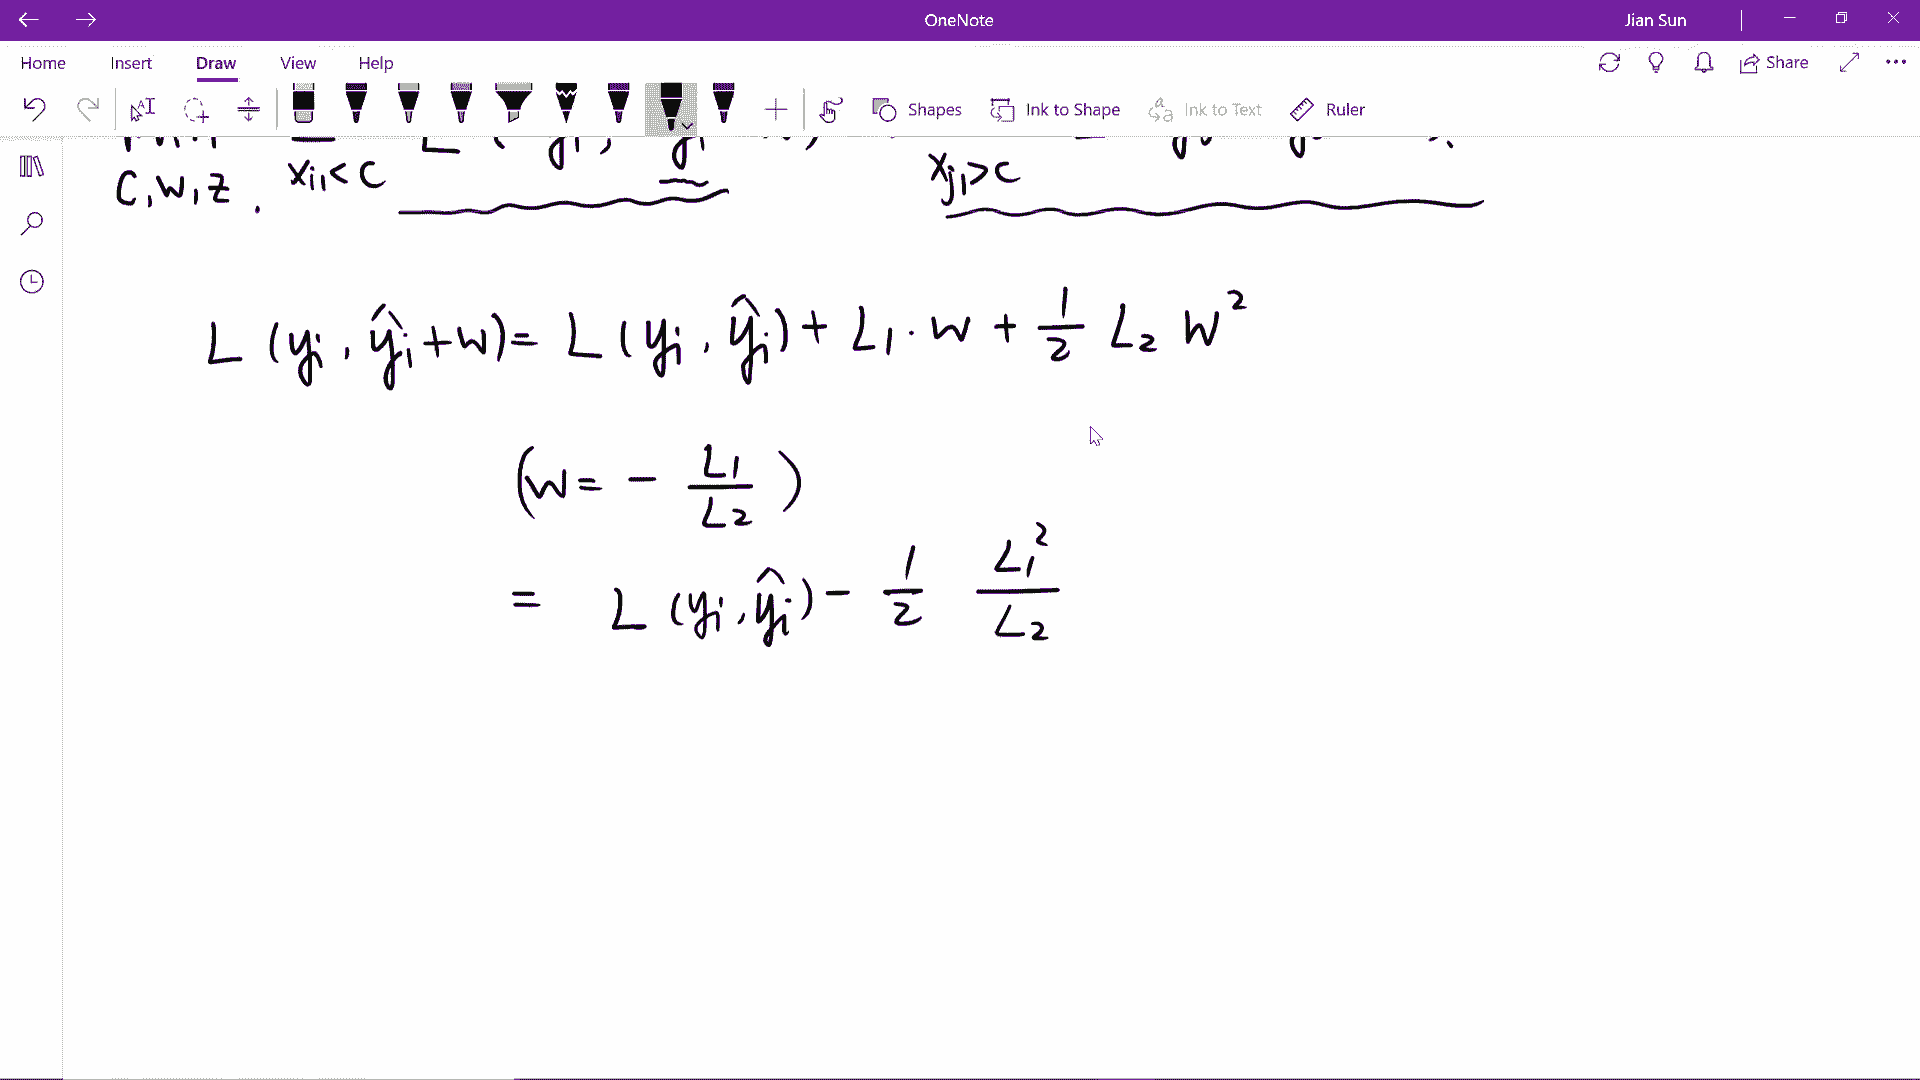 OneNote
Jian Sun
Home Insert Draw View Help
Share
Shapes Ink to Shape Ink to Text Ruler
C, W, Z . xi1 < C xj1 > C
L (yi, ŷi + w) = L (yi, ŷi) + L1 · w + 1/2 L2 w²
(w = - L1/L2)
= L (yi, ŷi) - 1/2 L1²/L2